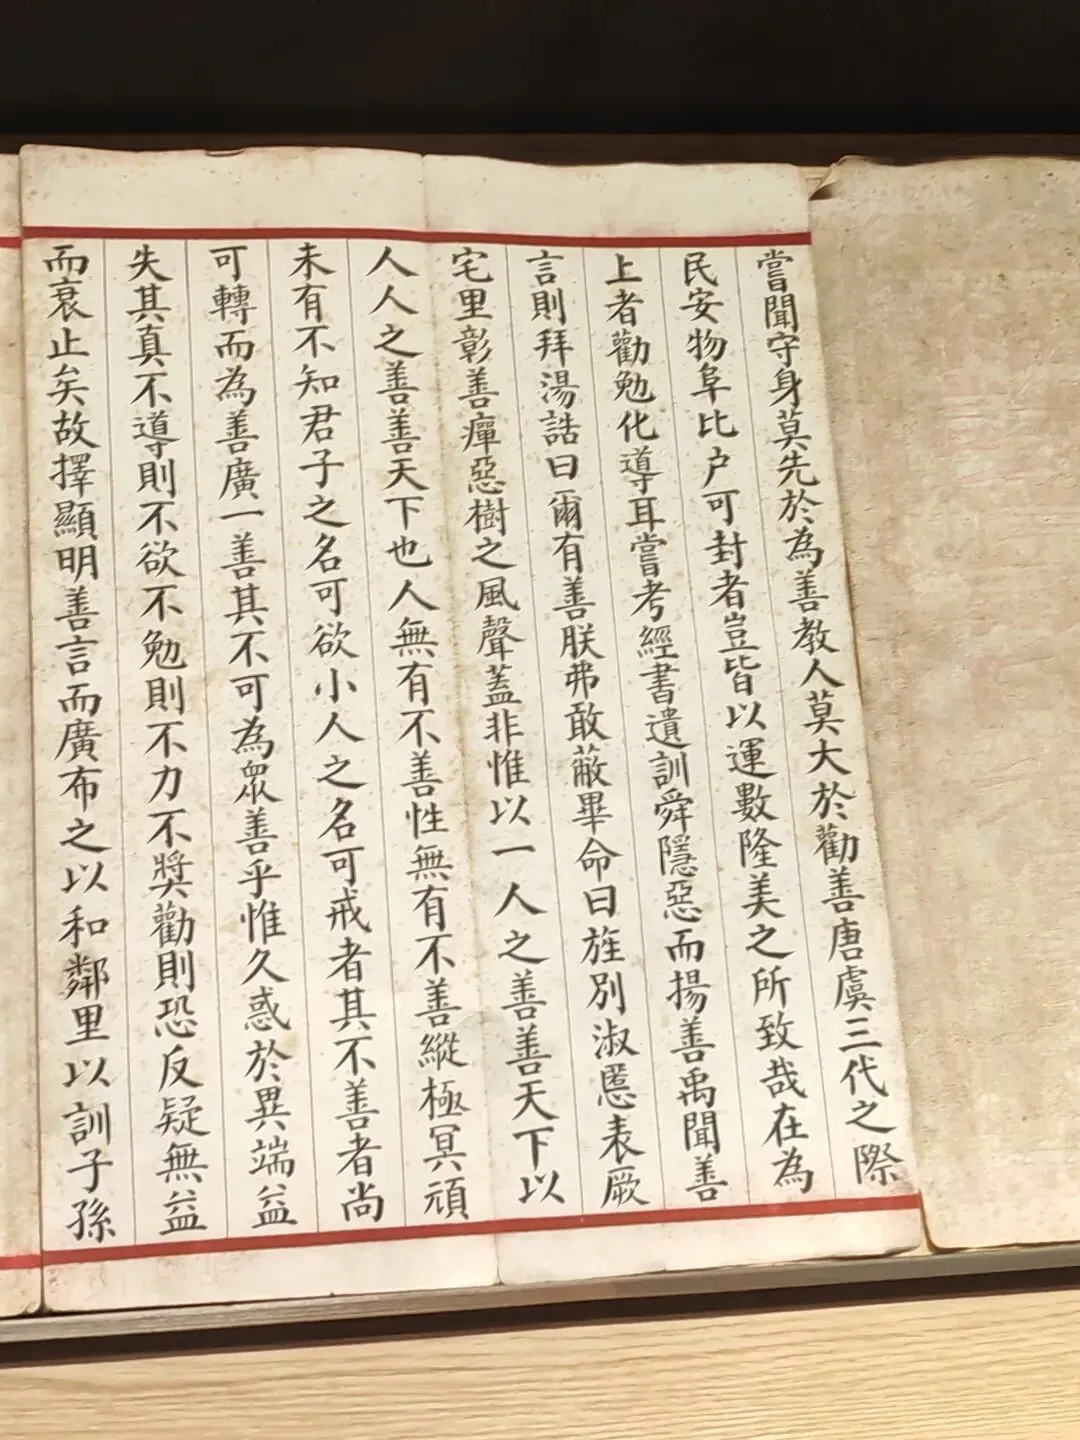 嘗聞守身莫先於為善教人莫大於勸善唐虞三代之際
民安物阜比户可封者豈皆以運數隆美之所致哉在為
上者勸勉化導耳嘗考經書遺訓舜隱惡而揚善禹聞善
言則拜湯誥曰爾有善朕弗敢蔽畢命曰旌別淑慝表厥
宅里彰善癉惡樹之風聲蓋非惟以一人之善善天下以
人人之善善天下也人無有不善性無有不善縱極冥頑
未有不知君子之名可欲小人之名可戒者其不善者尚
可轉而為善廣一善其不可為眾善乎惟久惑於異端益
失其真不導則不欲不勉則不力不獎勸則恐反疑無益
而衰止矣故擇顯明善言而廣布之以和鄰里以訓子孫